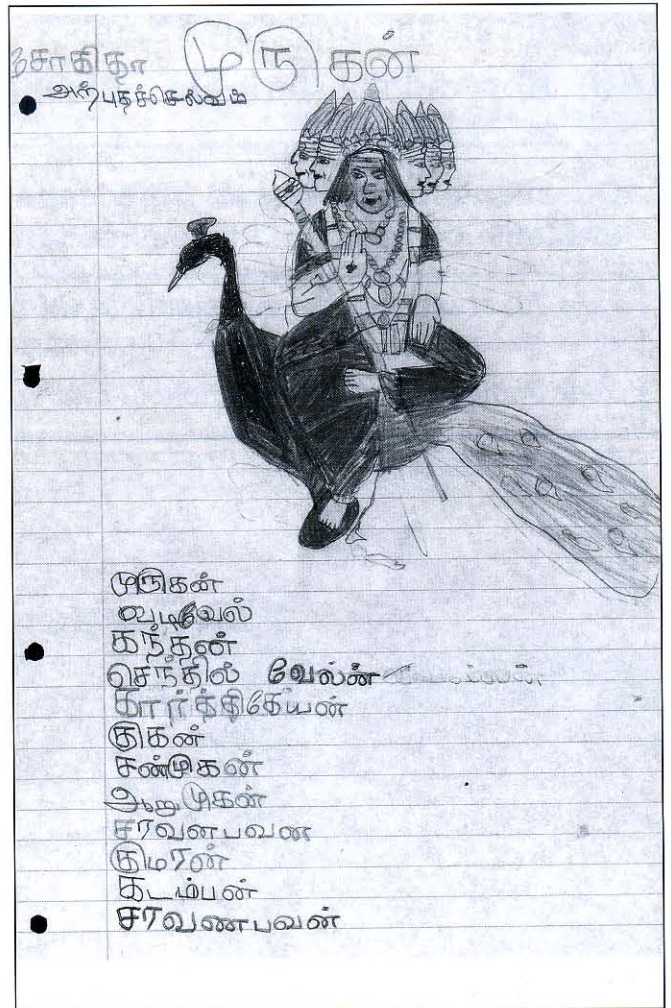 முருகன்
அற்புதச்செல்வம்
முருகன்
வடிவேல்
கந்தன்
செந்தில் வேலன்
கார்த்திகேயன்
குகன்
சண்முகன்
ஆறுமுகன்
சரவனபவன
குமரன்
கடம்பன்
சரவணபவன்